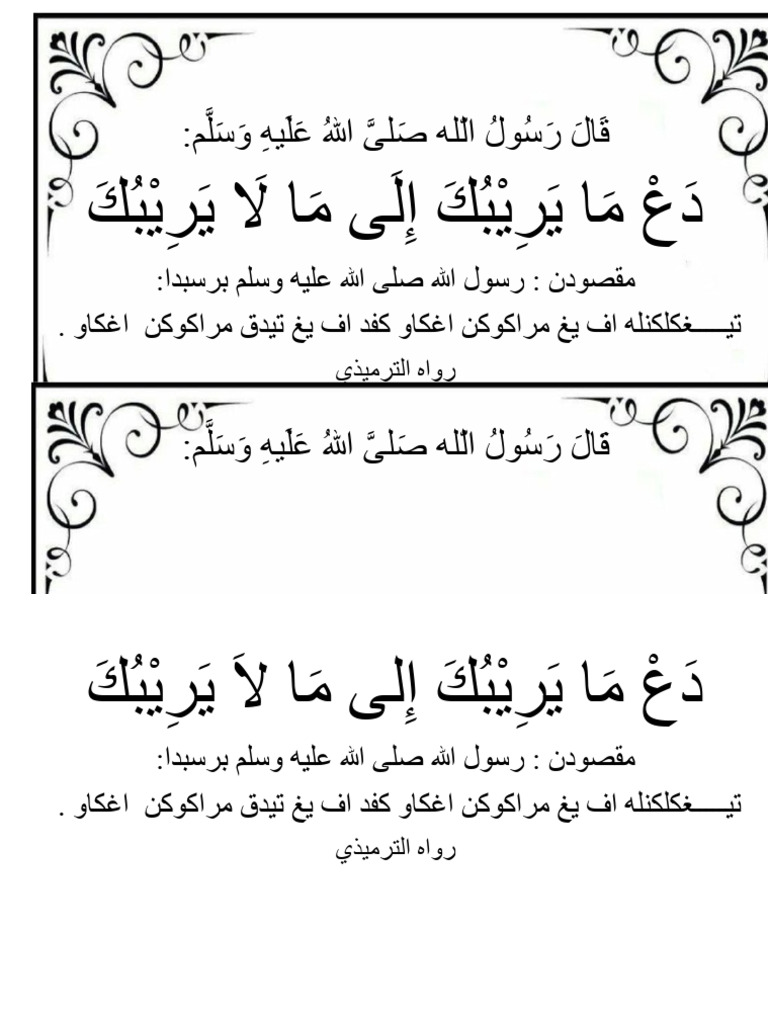 قَالَ رَسُولُ اللَه صَلىَّ اللهُ عَلَيهِ وَسَلَّم:
دَعْ مَا يَرِيْبُكَ إِلَى مَا لَا يَرِيْبُكَ
مقصودن : رسول الله صلى الله عليه وسلم برسبدا:
تيـــــغكلكنله اف يغ مراكوكن اغكاو كفد اف يغ تيدق مراكوكن اغكاو .
رواه الترميذي
قَالَ رَسُولُ اللَه صَلىَّ اللهُ عَلَيهِ وَسَلَّم:
دَعْ مَا يَرِيْبُكَ إِلى مَا لاَ يَرِيْبُكَ
مقصودن : رسول الله صلى الله عليه وسلم برسبدا:
تيـــــغكلكنله اف يغ مراكوكن اغكاو كفد اف يغ تيدق مراكوكن اغكاو .
رواه الترميذي